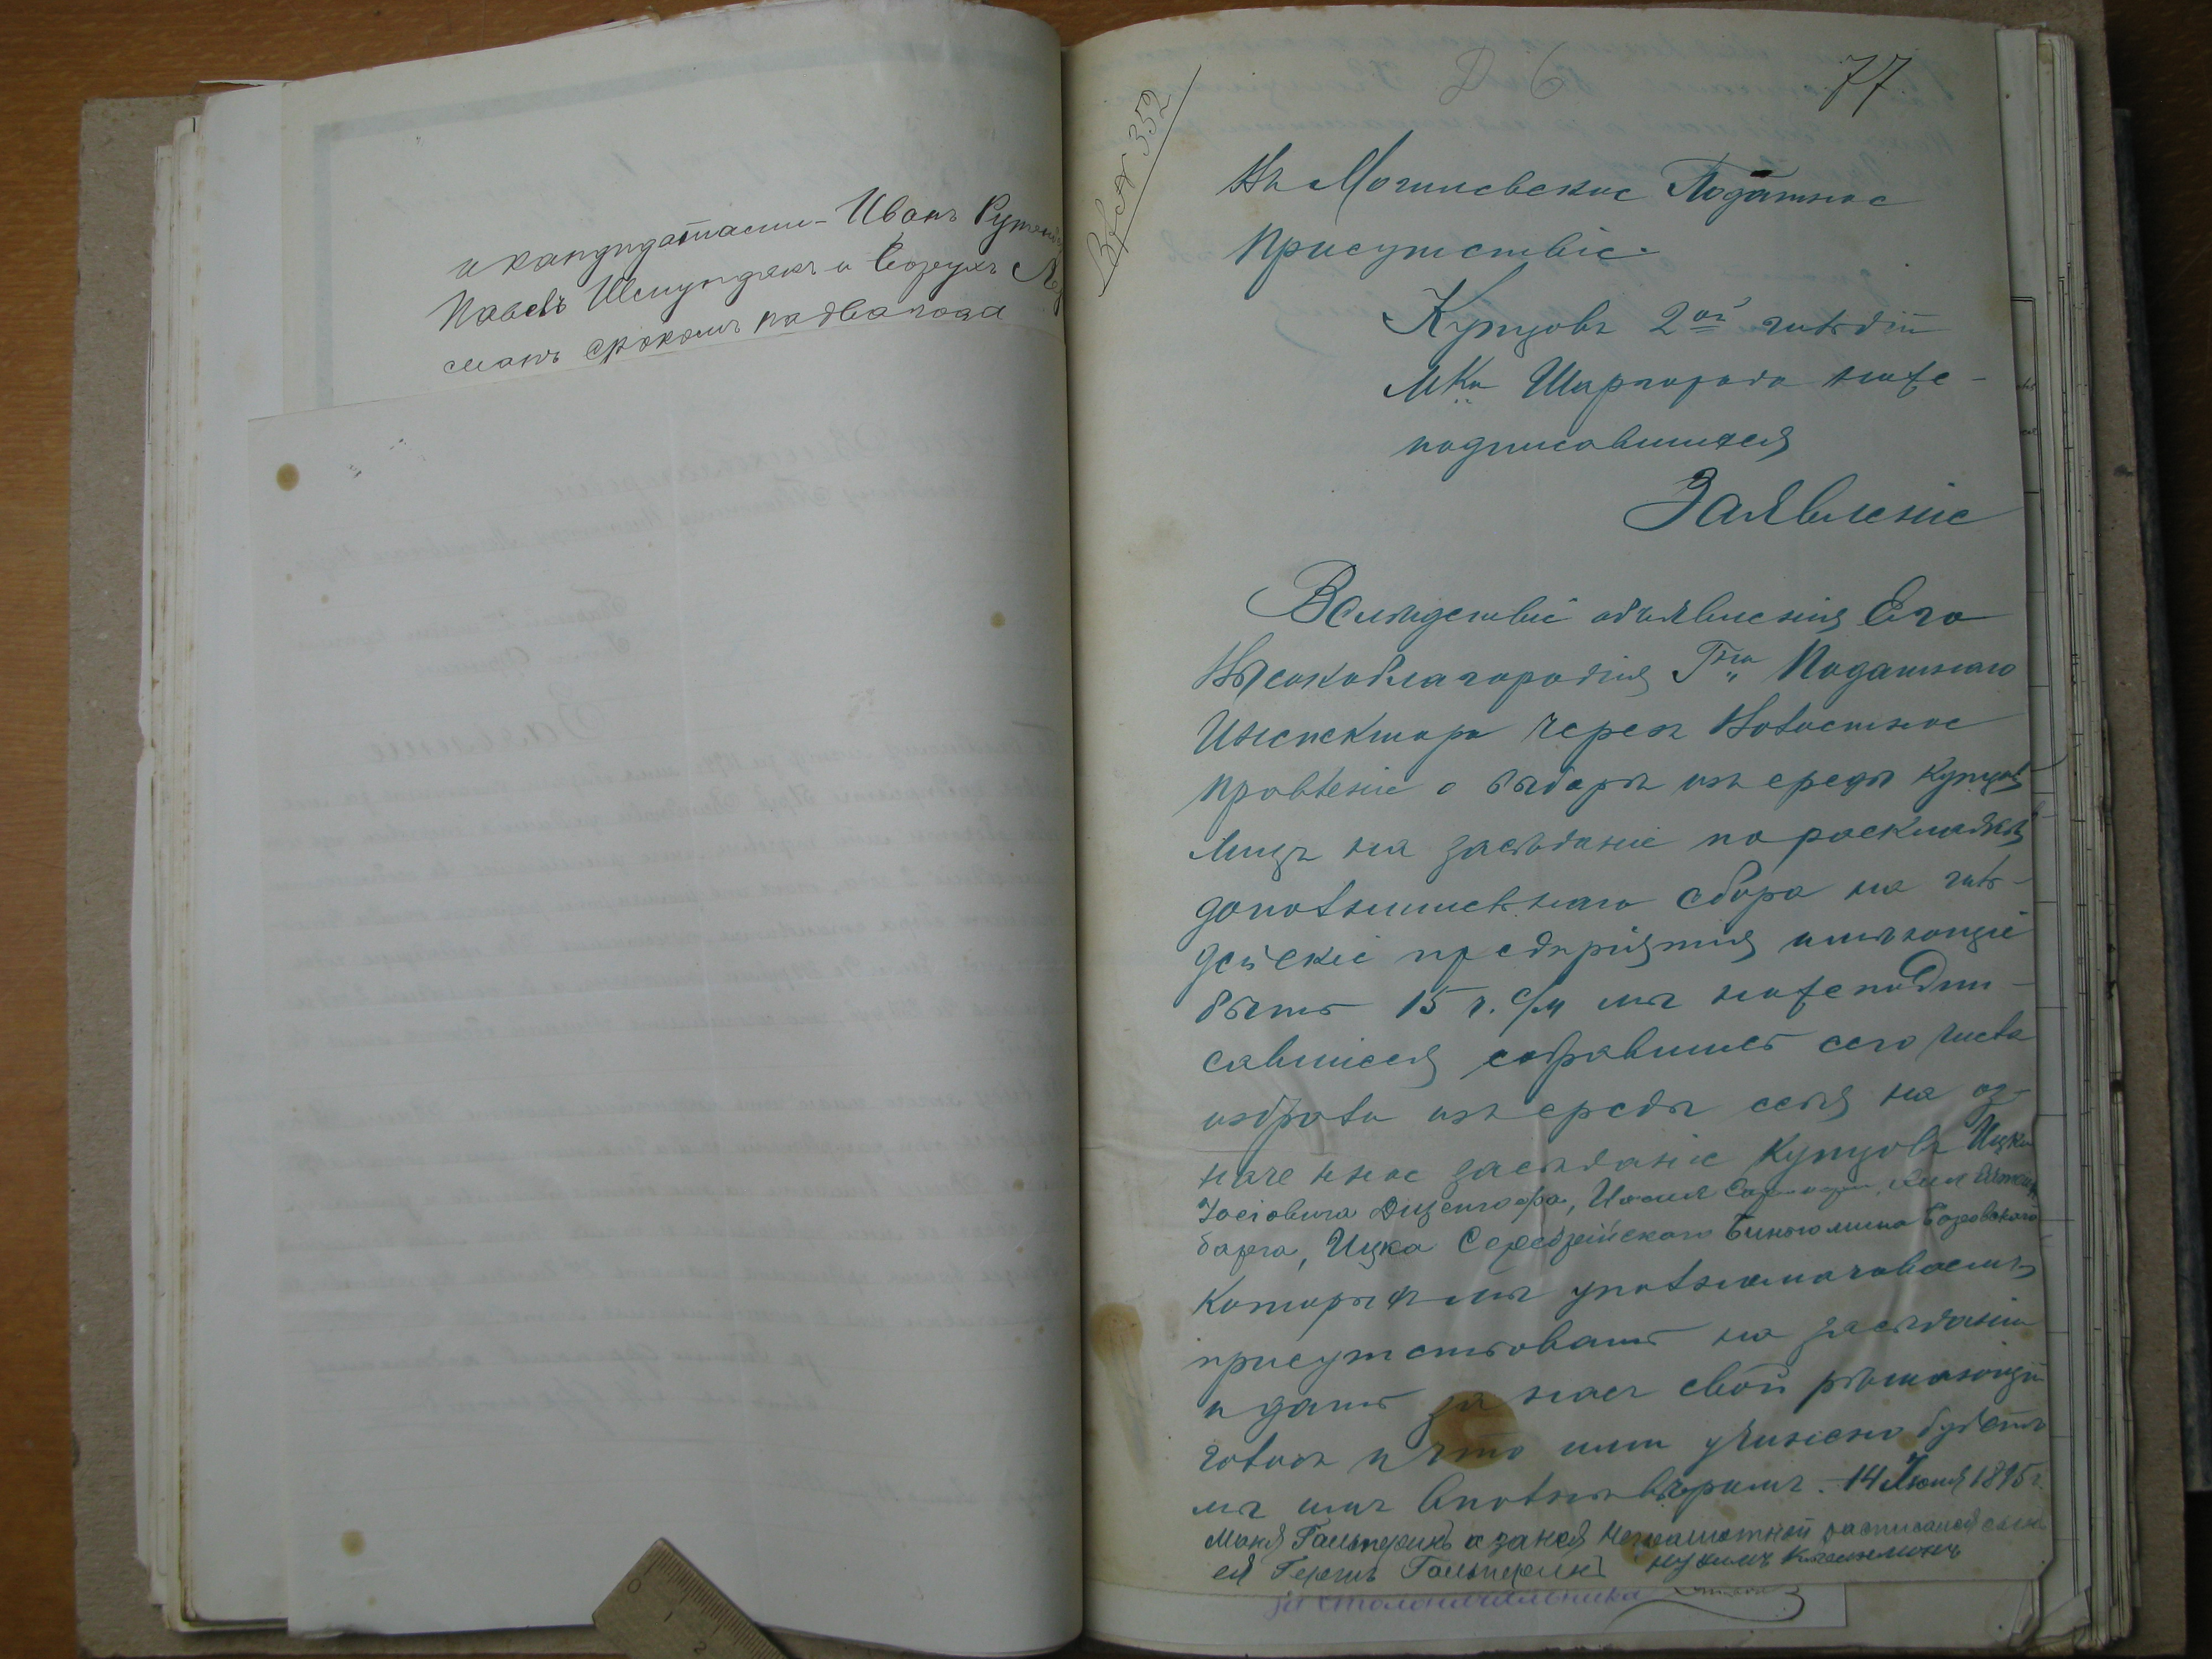 и кандидатами - Иванъ
Павелъ Шемундякъ и
срокомъ на два года
Вх № 352
6
77
Въ Могилевское Податное
Присутствіе
Купцовъ 2ой гильдіи
М̃ка Шаргорода ниже-
подписавшихся
Заявленіе
Вслѣдствіе объявленія Его
Высокоблагородія Гна Податнаго
Инспектора черезъ Волостное
Правленіе о выборѣ изъ среды купцовъ
лицъ на засѣданіе по раскладкѣ
дополнительнаго сбора на гиль-
дейскіе предпріятія имѣющіе
быть 15 ч. с/м мы нижеподпи-
савшіеся собравшись сего числа
избрали изъ среды себя на оз-
наченное засѣданіе Купцовъ Ицка
Іосіовича Диценгофа,
барга, Ицка Серебрійскаго Биньомина Боровскаго
которыхъ мы уполномачоваемъ
присутствовать на засѣданіи
и дать за насъ свой рѣшающій
голосъ и что ими учинено будетъ
мы имъ вполнѣ вѣримъ. 14 Іюня 1895 г.
Маня Гальперинъ а за нея неграмотной росписался сынъ
ея Гершъ Гальперинъ
за столоначальника